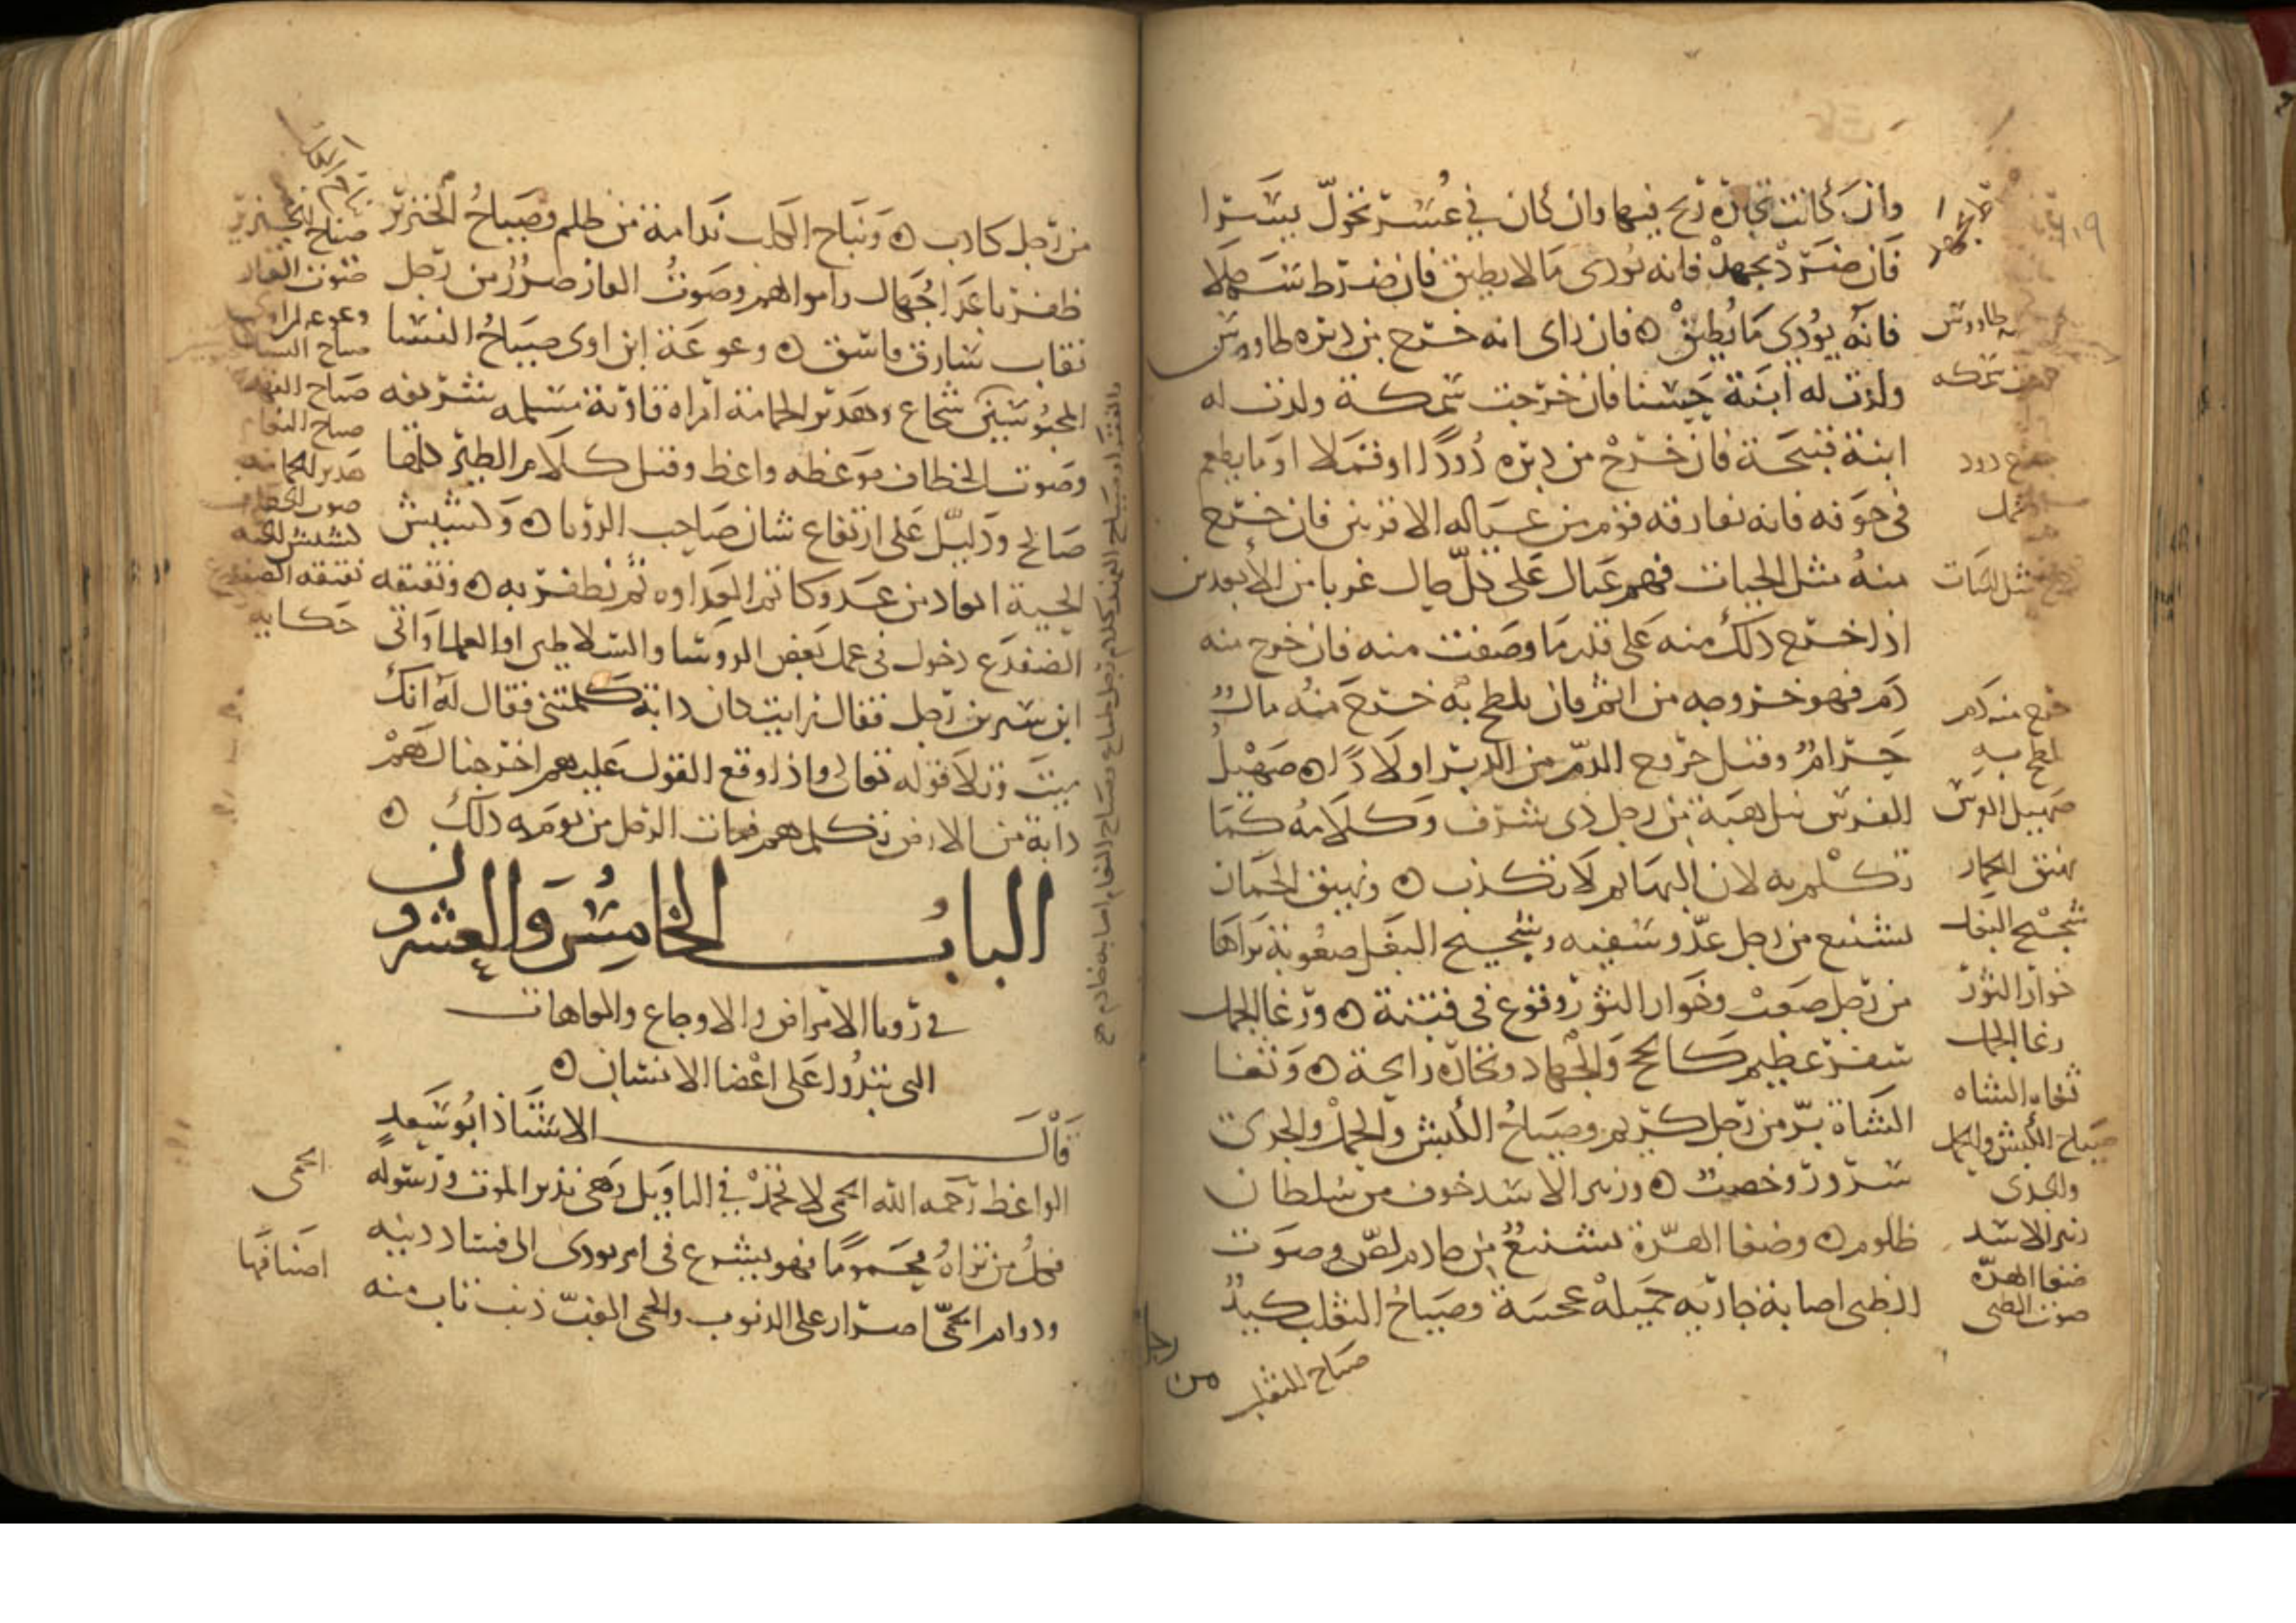 وان كانت تجارة ربح فيها وان كان في عسر تحول يسرا
فان ضرط بجهد فانه يؤدى ما لا يطيق فان ضرط سهلا
فانه يؤدي ما يطيق ه فان راى انه خرج من دبره طاووس
ولدت له ابنة حسنا فان خرجت سمكة ولدت له
ابنة قبيحة فان خرج من دبره دودا او قملا او ما يطعم
فى جوفه فانه يفارقه قوم من عياله الاقربين فان خرج
منه مثل الحيات فهم عيال على كل حال غربا من الأبعدين
اذا خرج ذلك منه على قدر ما وصفت منه فان خرج منه
دم فهو خروجه من اثم فان يلطخ به خرج منه مال
حرام وقيل خروج الدم من الدبر اولادا ه صهيل
الفرس نيل هيبة من رجل ذى شرف وكلامه كما
تكلم به لان البهايم لا تكذب ه ونهيق الحمار
تشنيع من رجل عدو سفيه وشحيح البغل صعوبة يراها
من رجل صعب وخوار الثور وقوع فى فتنة ه ورغا الجمل
سفر عظيم كالحج والجهاد وتجارة رابحة ه وثغا
الشاة بر من رجل كريم وصياح الكبش والحمل والجدى
سرور وخصب ه وزير الاسد خوف من سلطان
ظلوم ه وضغا الهرة تشنيع من خادم لص وصوت
الظبى اصابة جارية جميلة عجمية وصياح الثعلب كيد
من رجل
طاووس
سمكه
دود
مثل الحيات
خرج منه دم
صهيل الفرس
نهيق الحمار
شحيح البغل
خوار الثور
رغا الجمل
ثغاء الشاه
صياح الكبش والحمل
والجدى
زير الاسد
ضغا الهرة
صوت الظبى
صياح الثعلب
من رجل كاذب ه ونباح الكلب ندامة من ظلم وصياح الخنزير
ظفر باعدا جهال واموالهم وصوت الفار ضرر من رجل
نقاب سارق فاسق ه ووعوعة ابن اوى صياح النسا
المحبوسين شجاع وهدير الحمامة امراه قارئة مسلمه شريفه
وصوت الخطاف موعظه واعظ وقيل كلام الطير كلها
صالح ودليل على ارتفاع شان صاحب الرويا ه وكشيش
الحية ايعاد من عدو كاتم العداوه ثم يظفر به ه ونقنقه
الضفدع دخول فى عمل بعض الروسا والسلاطين او العلما واتى
ابن سيرين رجل فقال رايت كان دابة كلمتنى فقال له انك
ميت وتلا قوله تعالى واذا وقع القول عليهم اخرجنا لهم
دابة من الارض تكلمهم فمات الرجل من يومه ذلك ه
الباب الخامس والعشرون
في رويا الامراض والاوجاع والعاهات
التى تبدوا على اعضا الانسان ه
قال الاستاذ ابو سعد
الواعظ رحمه الله الحمى لا تحمد في التاويل وهى نذير الموت ورسوله
فكل من تراه محموما فهو يشرع فى امر يودى الى فساد دينه
ودوام الحمى اصرار على الذنوب والحمى الغب ذنب تاب منه
صياح الخنزير
صوت الفار
صياح النسا
هدير الحمامه
صوت الخطاف
كشيش الحيه
نقنقه الضفدع
حكايه
الحمى
اصنافها